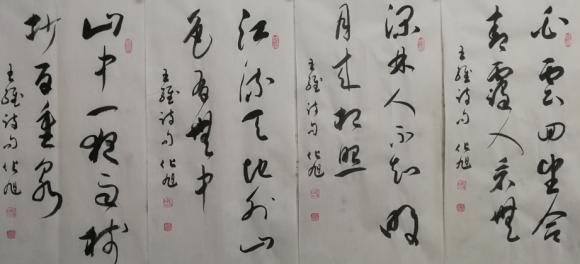 白雲回望合
青靄入看無
王維诗句 化旭
深林人不知明
月来相照
王維诗句 化旭
江流天地外山
色有無中
王維诗句 化旭
山中一夜雨树
杪百重泉
王維诗句 化旭